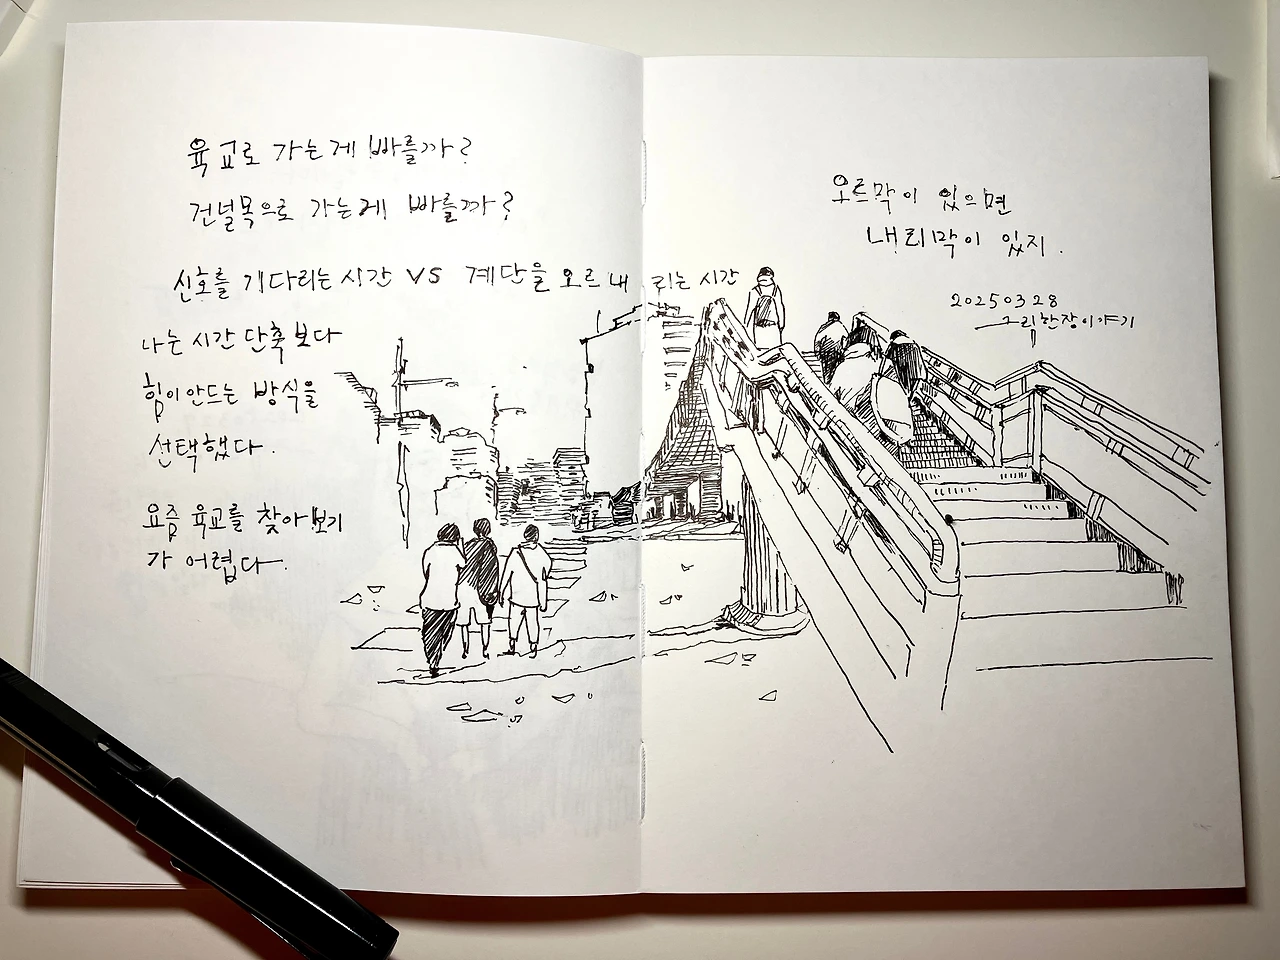 육교로 가는게 빠를까?
건널목으로 가는게 빠를까?
신호를 기다리는 시간 VS 계단을 오르내리는 시간
나는 시간 단축보다
힘이 안드는 방식을
선택했다.
요즘 육교를 찾아보기
가 어렵다.
오르막이 있으면
내리막이 있지.
20250328
그림한장이야기